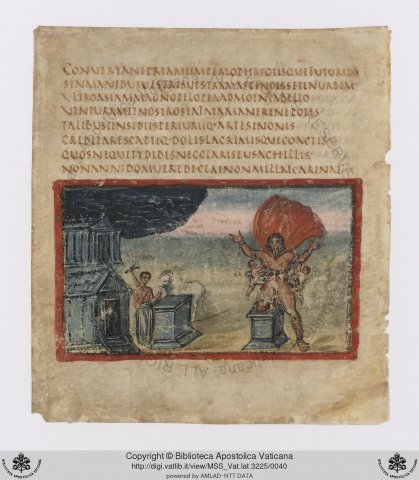 CONVERTANTPRIAMIIMPERIOPHRYGIBUSQUEFUTURUM
SINMANIBUSVESTRISVESTRAMASCENDISSETINURBEM
ULTROASIAMMAGNOPELOPEAADMOENIABELLO
VENTURAMETNOSTROSEAFATAMANERENEPOTES
TALIBUSINSIDIISPERIURIQ·ARTESINONIS
CREDITARESCAPTIQ·DOLISLACRIMISQUECOACTIS
QUOSNEQUETYDIDESNECLARISEUSACHILLES
NONANNIDOMUEREDECEMNONMILLECARINAE
LAOCOON
Copyright © Biblioteca Apostolica Vaticana
http://digi.vatlib.it/view/MSS_Vat.lat.3225/0040
powered by AMLAD-NTT DATA